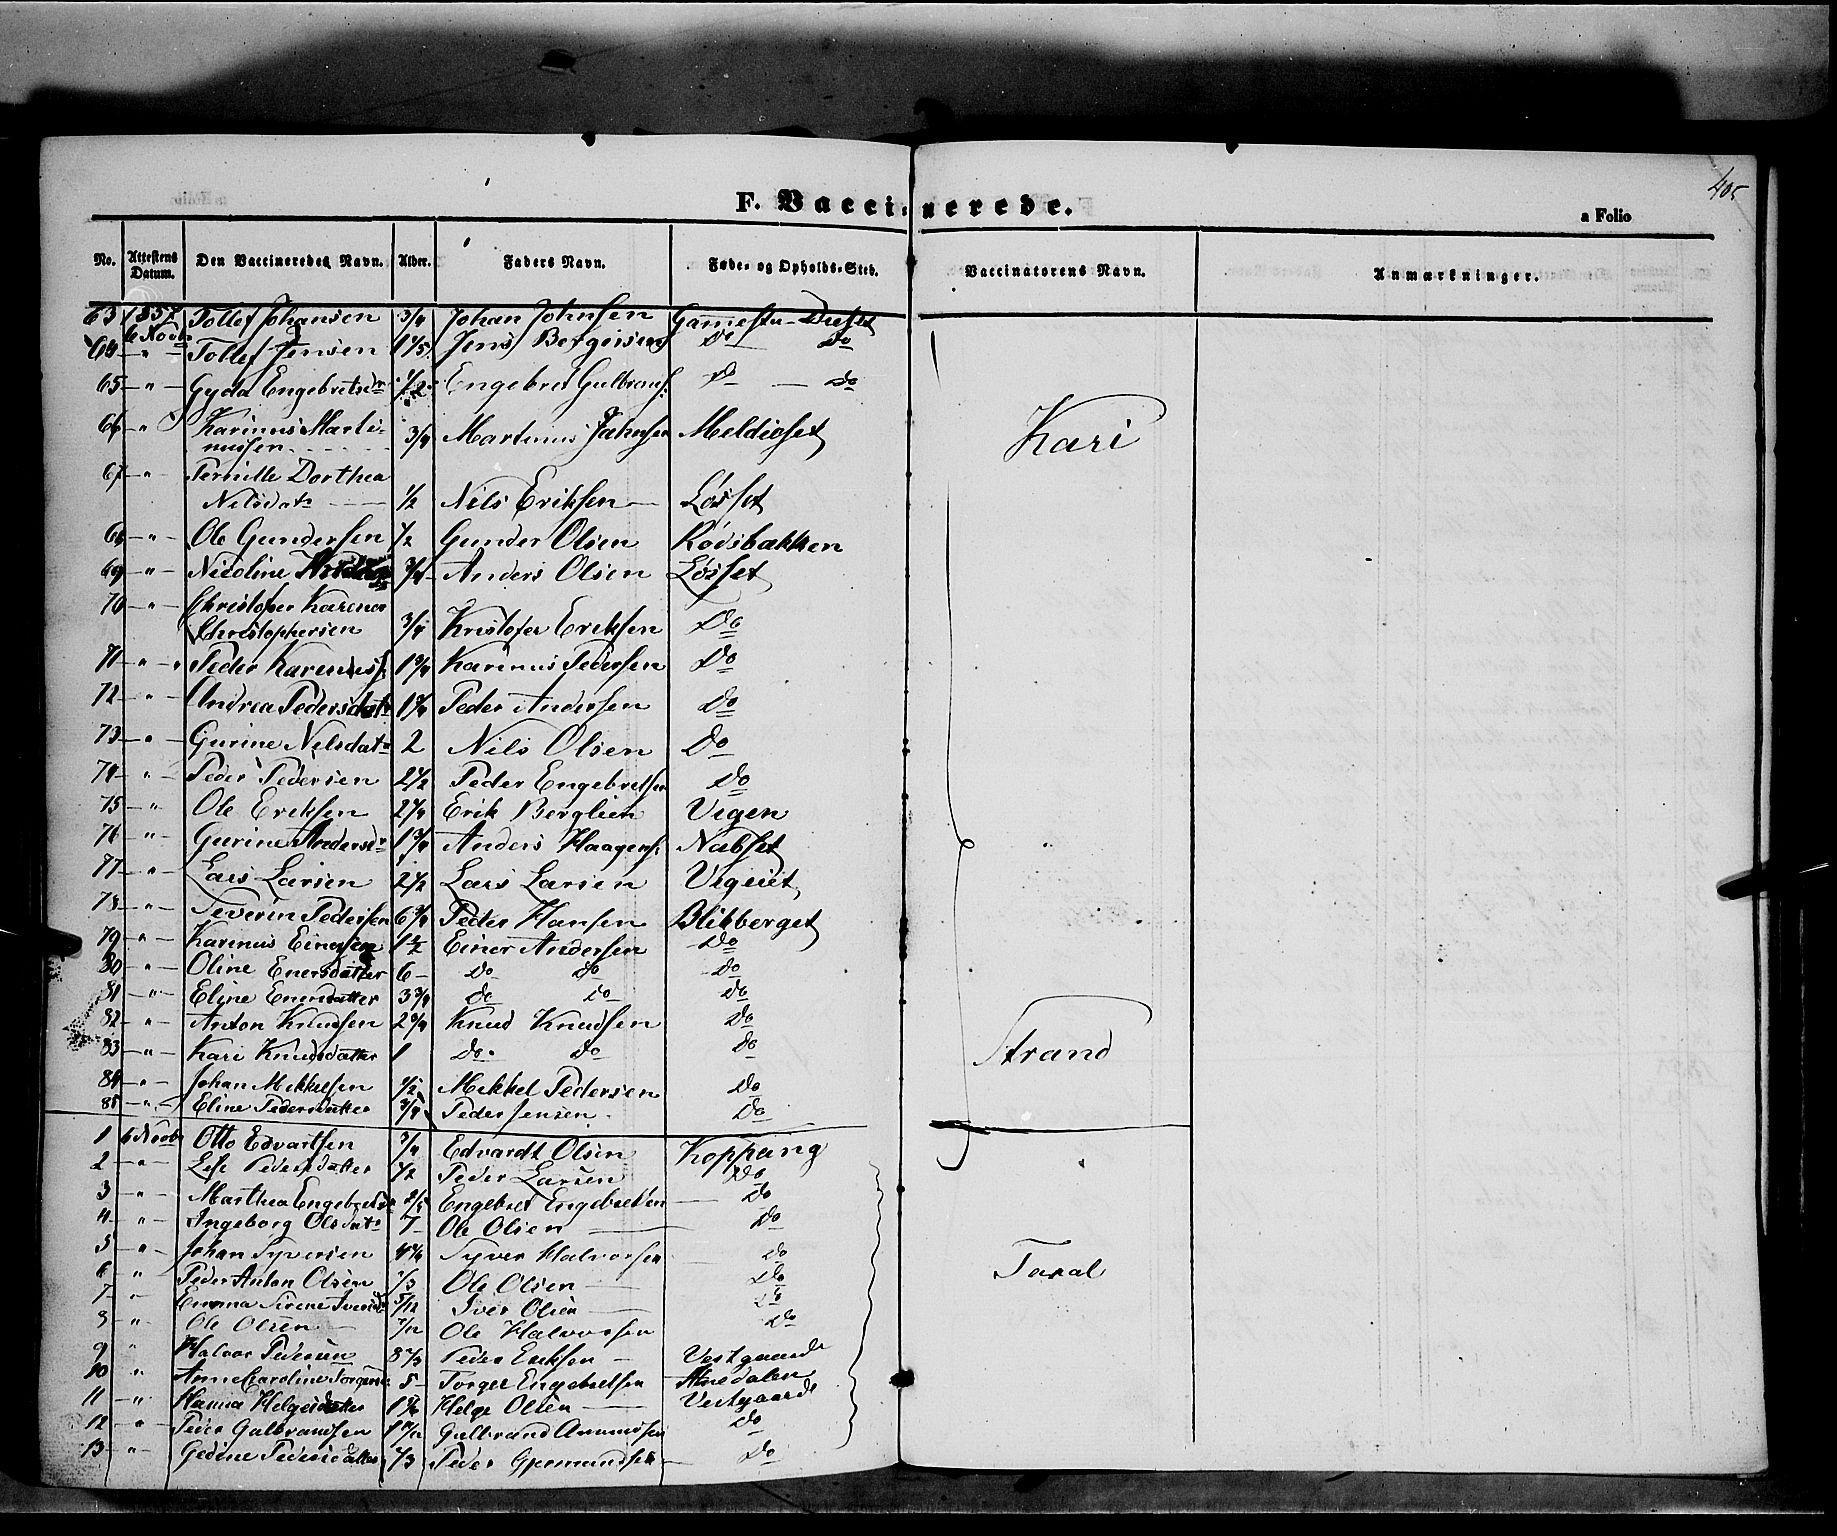 405
F. Vaccinerede.
a Folio
No. Attestens Datum. Den Vaccineredes Navn. Alder. Faders Navn. Føde- og Opholds-Sted. Vaccinatorens Navn. Anmærkninger.
63 1857 6 Novbr Tollef Johansen 3/4 Johan Johnsen
64 " Tollef Jensen Jens Bergersen Do Do
65 " Gyda Engebretsdr 1/2 Engebret Gulbrans. Do Do
66 " Karinus Marti-
nussen 3/4 Martinus Jahnsen Meldieset
Kari
67 " Pernille Dorthea
Nilsdatr 1/2 Nils Eriksen Løsset
68 " Ole Gundersen 1/2 Gunder Olsen Rødsbakken
69 " Nicoline 3/4 Anders Olsen Løsset
70 " Christofer Karenus
Christophersen 3/4 Kristofer Eriksen Do
71 " Peder Karinuss. 1 3/4 Karinus Pedersen Do
72 " Andrea Pedersdatr 1 3/4 Peder Andersen Do
73 " Gurine Nilsdatr 2 Nils Olsen Do
74 " Peder Pedersen 2 1/2 Peder Engebretsen Do
75 " Ole Eriksen 2 1/4 Erik Berglien Vigen
76 " Gurine Andersdr 1 3/4 Anders Haagens. Nabset
77 " Lars Larsen 2 1/2 Lars Larsen
78 " Severin Pedersen 6 3/4 Peder Hansen Blikberget
79 " Karinus Einersen 1 1/2 Einer Andersen Do
80 " Oline Enersdatter 6 Do Do Do
81 " Eline Enersdatter 3 3/4 Do Do Do
82 " Anton Knudsen 2 3/4 Knud Knudsen Do
83 " Kari Knudsdatter 1 Do Do Do
Strand
84 " Johan Mikkelsen 1/2 Mikkel Pedersen Do
85 " Eline Pedersdatter 3/4 Peder Jensen Do
1 6 Novbr Otto Edvartsen 3/4 Edvardt Olsen Koppang
2 " Lise Pedersdatter 1/2 Peder Larsen Do
3 " Marthea Engebretsdr Engebret Engebretsen Do
4 " Ingeborg Olsdatr 7 Ole Olsen Do
5 " Johan Syversen Syver Halvorsen Do
Tanal
6 " Peder Anton Olsen Ole Olsen Do
7 " Emma Sirene Iversdr 5/12 Iver Olsen Do
8 " Ole Olsen 7/12 Ole Halvorsen Do
9 " Halvor Pedersen Peder Eriksen Vestgaarde
10 " Anne Caroline Torgersdr 5 Torger Engebretsen Atnedalen
11 " Hanna Helgesdatter Helge Olsen Vestgaarde
12 " Peder Gulbrandsen Gulbrand Amundsen Do
13 " Gedine Pedersdatter Peder Gjermundsen Do